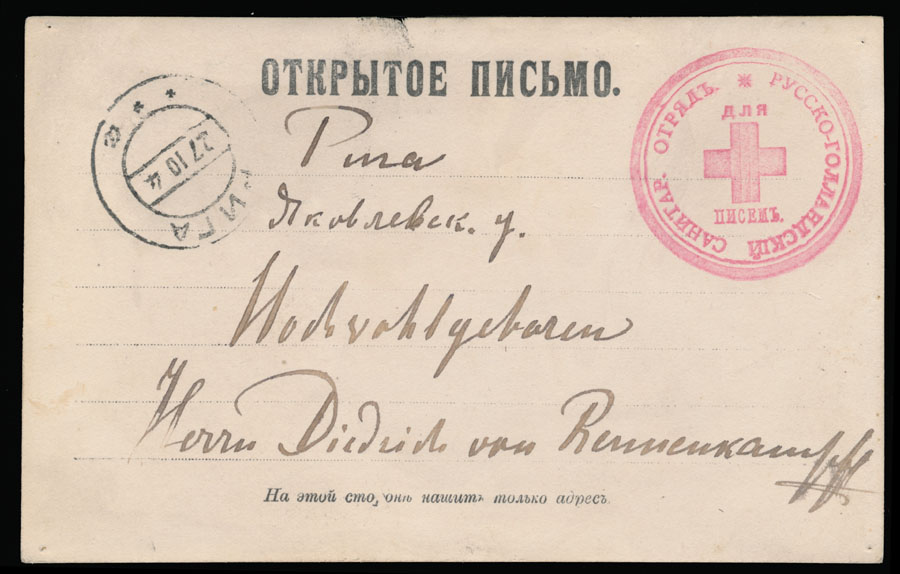 ОТКРЫТОЕ ПИСЬМО.
РУССКО-ГОЛЛАНДСКІЙ САНИТАР. ОТРЯДЪ.
ДЛЯ
ПИСЕМЪ.
РИГА
27 10 4
Рига
Яковлевск. у.
Hochwohlgeboren
Herrn Diedrich von Rennenkampff
На этой сто, онѣ нашитъ только адресъ.